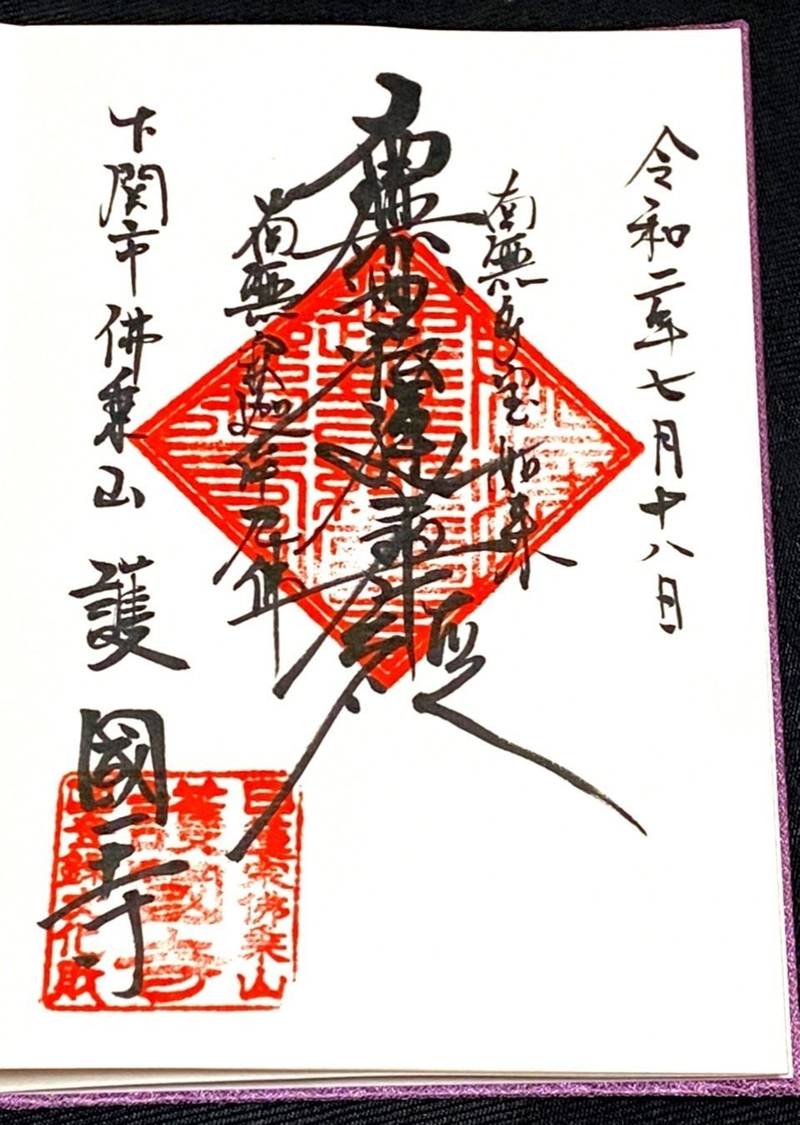 令和二年七月十八日
南無多宝如来
南無妙法蓮華経
南無釈迦牟尼仏
下関市 佛乗山 護國寺
日蓮宗佛乗山
護國寺